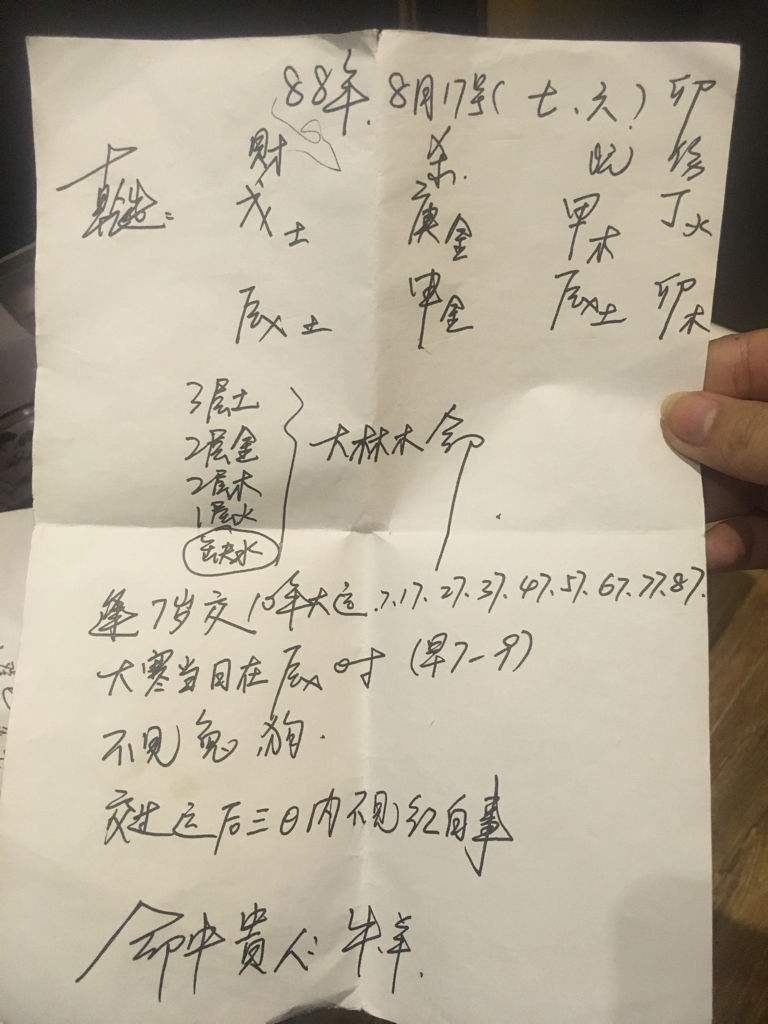 88年.8月17号(七.六)卯
财 杀 比 伤
乾造: 戊土 庚金 甲木 丁火
辰土 申金 辰土 卯木
3层土
2层金
2层木 大林木命
1层火
缺水
逢7岁交10年大运.7.17.27.37.47.57.67.77.87.
大寒当日在辰时(早7-9)
不见兔狗.
交生运后三日内不见红白事
命中貴人:牛羊.